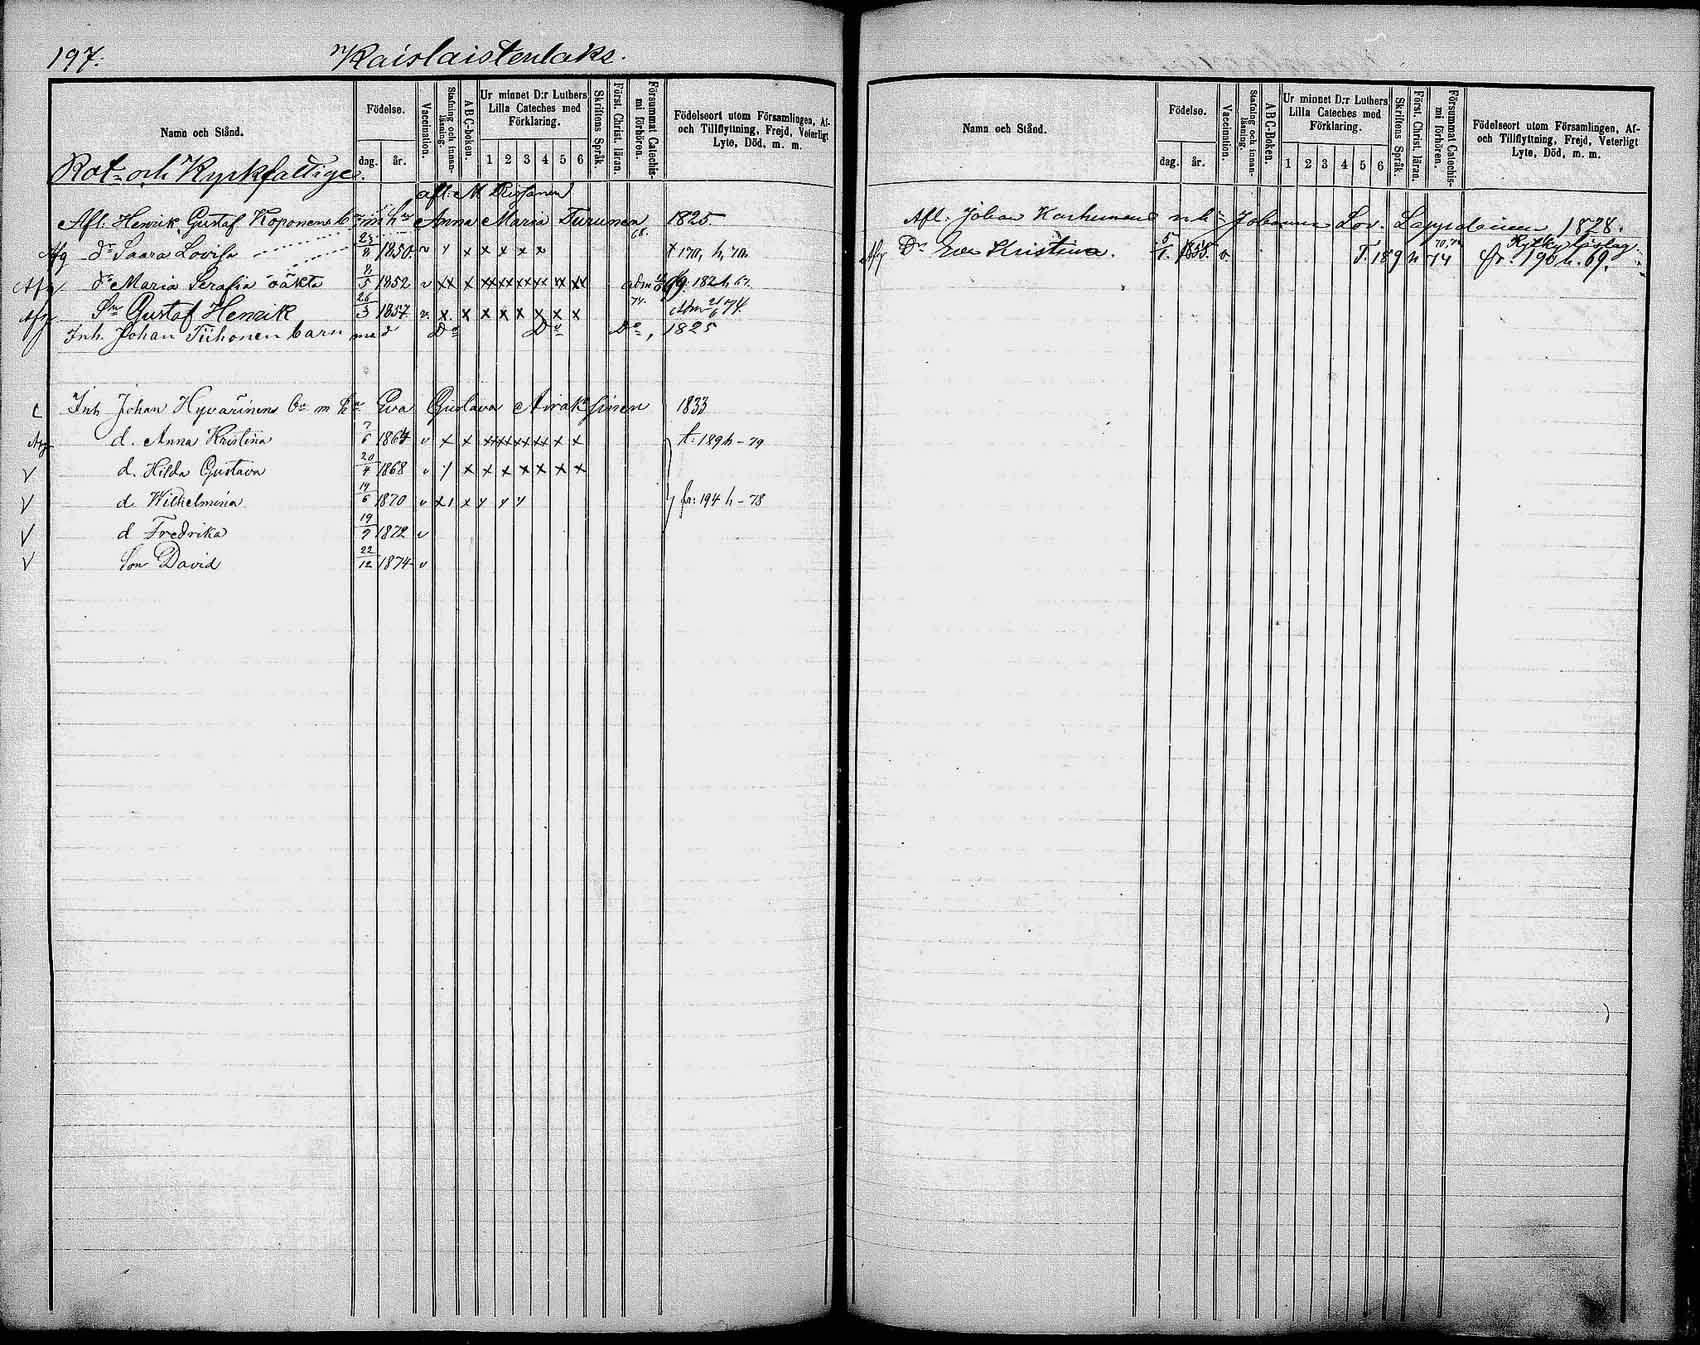 197. Kaislaistenlaks.
Namn och Stånd.
Födelse.
dag. år.
Vaccination.
Stafning och innanläsning.
ABC-boken.
Ur minnet D:r Luthers Lilla Cateches med Förklaring.
1 2 3 4 5 6
Skriftens Språk.
Först. Christ. läran.
Försummat Catechismi förhören.
Födelseort utom Församlingen, Af- och Tillflyttning, Frejd, Veterligt Lyte, Död, m. m.
Rot- och Kyrkfattige.
afl. M.
Afl. Henrik Gustaf Koponens b. m. h. Anna Maria Turunen 1825.
Afg dr Saara Lovisa 23/8 1850. v x x x x x x 68. † 170, h, 70.
Afg dr Maria Serafia oäkta 8/5 1852 v xx x xx xx xx xx xx xx 182 h 67.
Afg Sn Gustaf Henrik 26/3 1857 v. x. x x x x x x x 74. 21/6 74.
Inh. Johan Tiihonen barn med Do Do Do, 1825
Inh Johan Hyvärinens bn m hu Eva Gustava Airaksinen 1833
Afg d. Anna Kristina 7/6 1864 v x x xx xx xx xx x x t. 189 h - 79
V d. Hilda Gustava 20/4 1868 v / x x x x x x x
V d. Wilhelmina 19/6 1870 v x 1 x y y y fr: 194 h - 78
V d Fredrika 19/9 1872 v
V Son David 22/12 1874 v
Namn och Stånd.
Födelse.
dag. år.
Vaccination.
Stafning och innanläsning.
ABC-boken.
Ur minnet D:r Luthers Lilla Cateches med Förklaring.
1 2 3 4 5 6
Skriftens Språk.
Först. Christ. läran.
Försummat Catechismi förhören.
Födelseort utom Församlingen, Af- och Tillflyttning, Frejd, Veterligt Lyte, Död, m. m.
Afl. Johan Karhunens Johanna Lov. Lappalainen 1828.
Afg Dr Eva Kristina. 5/1. 1855. v. T. 189 h 74 fr. 190 h. 69.